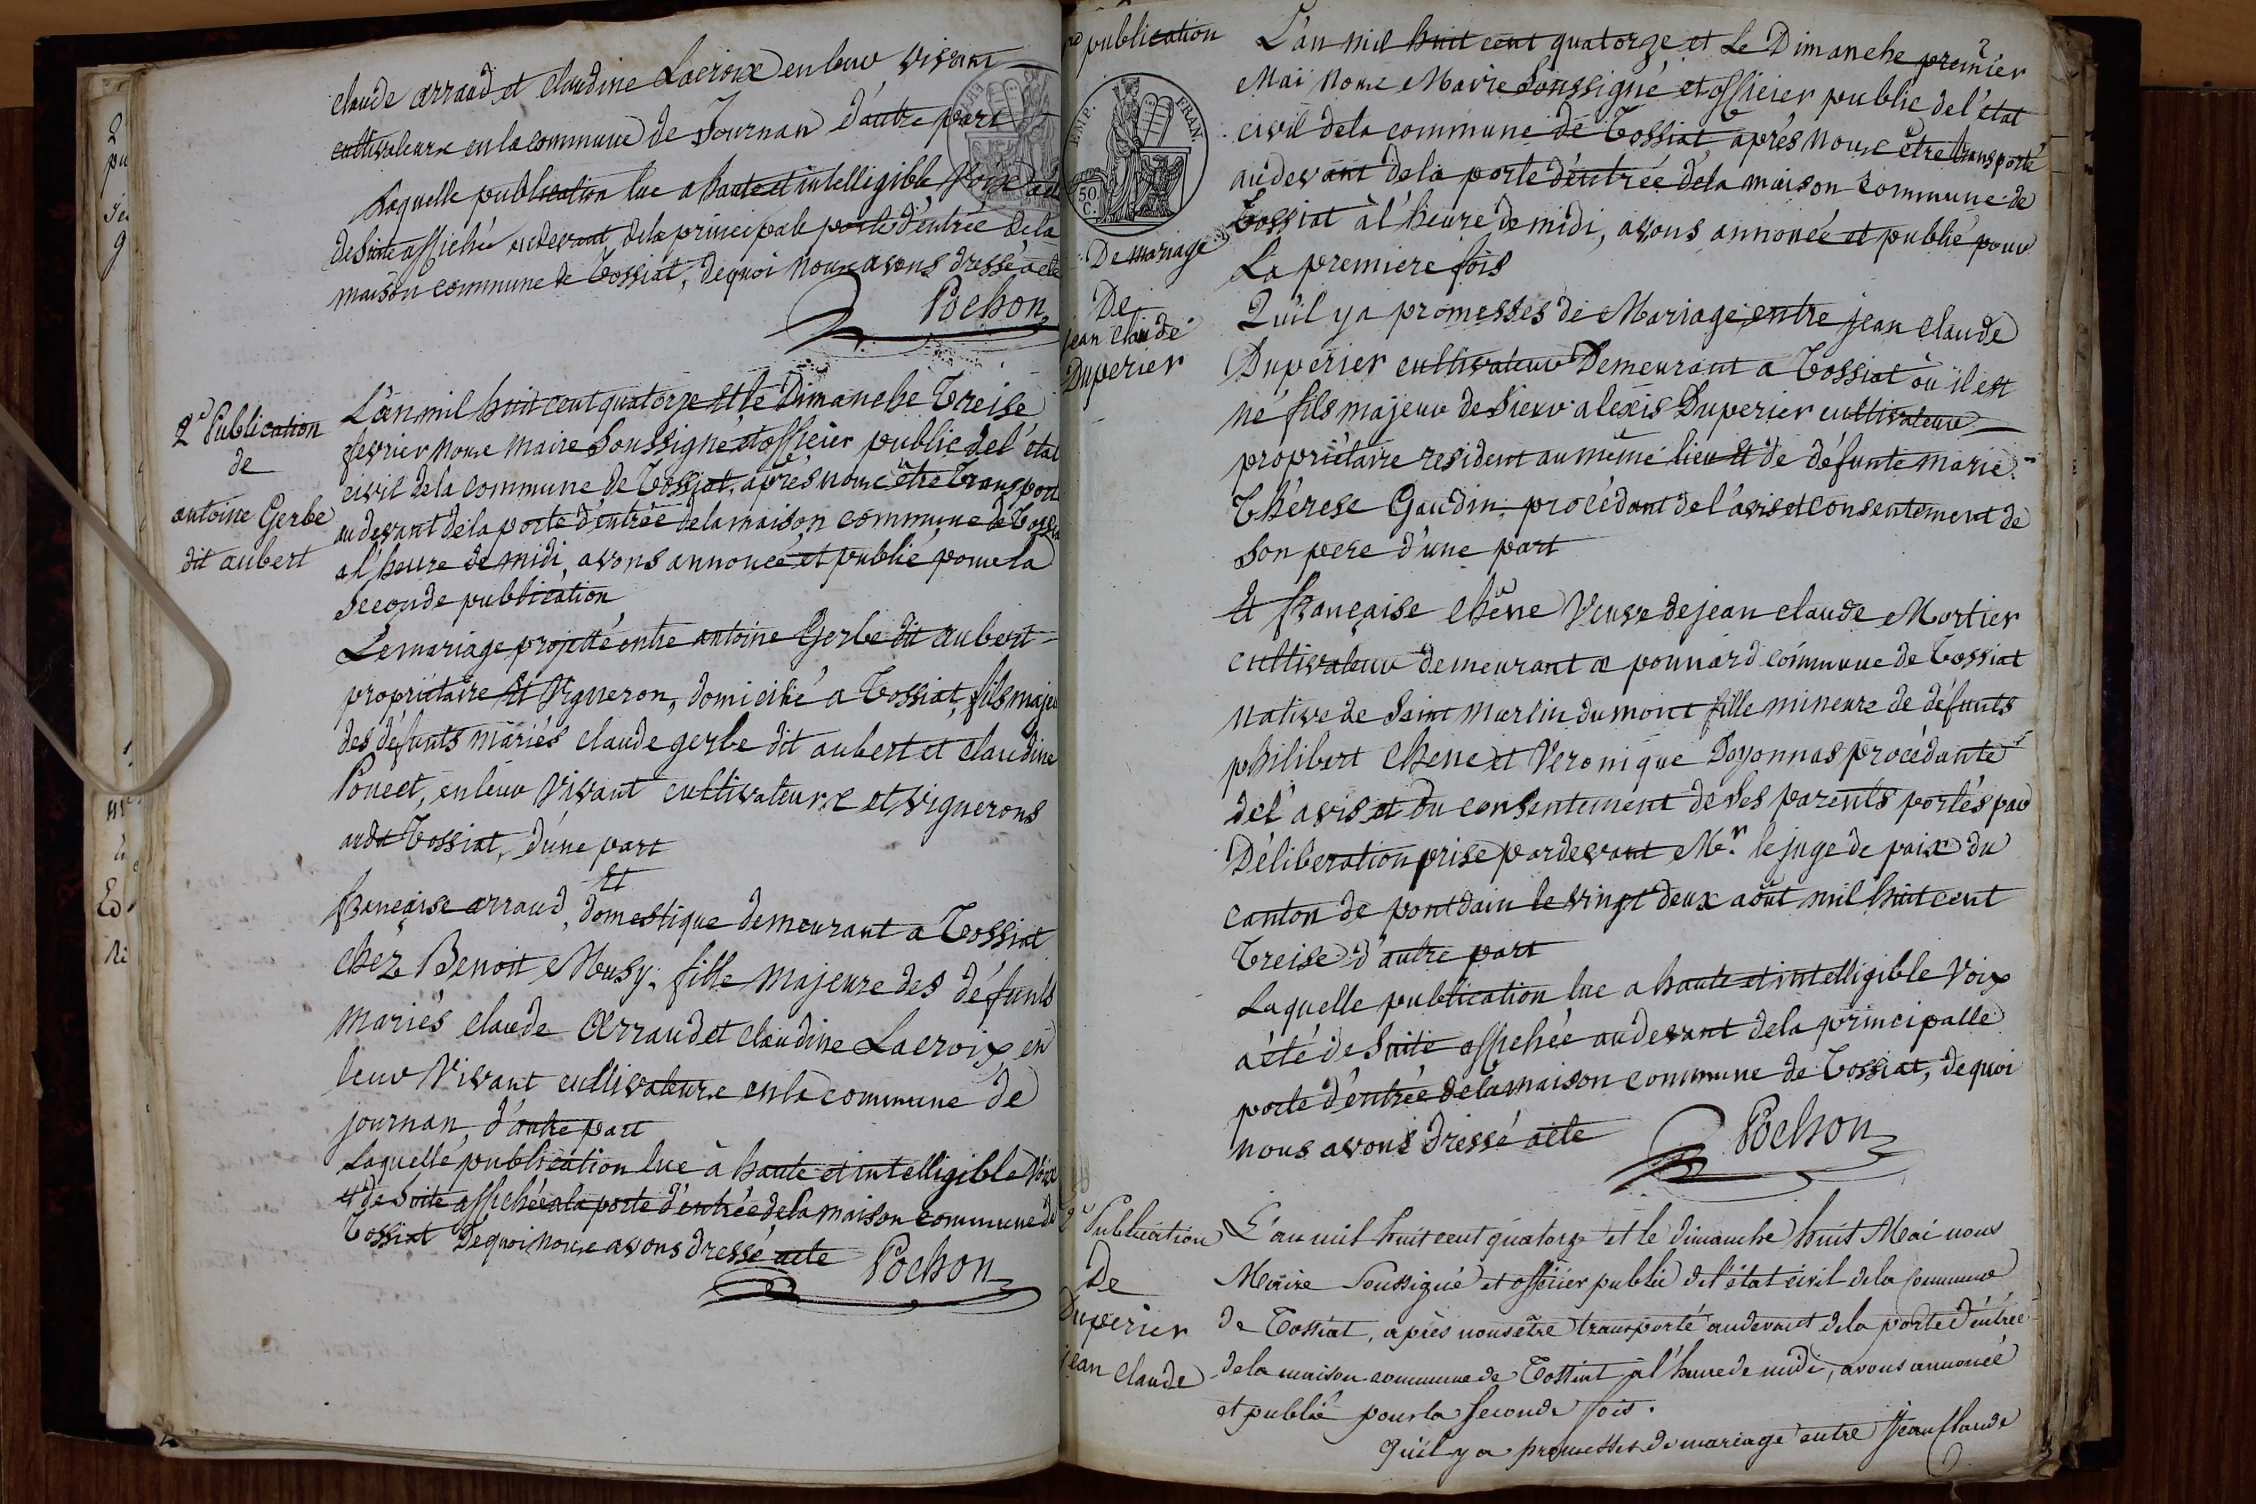 claude arraud et claudine Lacroix en leur vivant
cultivateurs en la commune de Journan d'autre part
Laquelle publication lue a haute et intelligible Voix a été
de Suite affichée au devant de la principale porte d'entrée de la
maison commune de Tossiat, de quoi nous avons dressé acte
Pochon
2e Publication
de
antoine Gerbe
dit aubert
L'an mil huit cent quatorze et le Dimanche Treise
fevrier nous maire Soussigné et officier public de l'état
civil de la commune de Tossiat, après nous être Transporté
au devant de la porte d'entrée de la maison commune de Tossiat
a l'heure de midi, avons annoncé et publié pour la
Seconde publication
Le mariage projetté entre antoine Gerbe dit aubert
propriétaire et Vigneron, domicilié a Tossiat, fils majeur
des défunts mariés claude gerbe dit aubert et claudine
Poncet, en leur Vivant cultivateurs et vignerons
audt Tossiat, d'une part
Et
française arraud, domestique demeurant a Tossiat
chez Benoit Musy, fille majeure des défunts
mariés claude Arraud et claudine Lacroix, en
leur Vivant cultivateurs en la commune de
journan, d'autre part
Laquelle publication lue à haute et intelligible Voix
et de Suite affichée a la porte d'entrée de la maison commune de
Tossiat De quoi nous avons dressé acte
Pochon
2
re publication
De mariage
De
jean claude
Duperier
FRAN.
50
C.
L'an mil huit cent quatorze et Le Dimanche premier
Mai nous Maire Soussigné et officier public de l'état
civil de la commune de Tossiat après nous être transporté
au devant de la porte d'entrée de la maison commune de
Tossiat à l'heure de midi, avons annoncé et publié pour
La premiere fois
Qu'il y a promesses de Mariage entre jean claude
Duperier cultivateur Demeurant a Tossiat où il est
né fils majeur de Sieur alexis Duperier cultivateur
propriétaire resident au même lieu et de défunte marie
Thérese Gaudin, procédant de l'avis et consentement de
Son pere d'une part
Et française chêne Veuve de jean claude Mortier
cultivateur demeurant a ponnard commune de Tossiat
native de Saint martin du mont fille mineure de défunts
philibert chene et Veronique Doyonnas procédante
de l'avis et du consentement de Ses parents portés par
Déliberation prise pardevant Mr. le juge de paix du
canton de pontdain le vingt deux août mil huit cent
Treise d'autre part
Laquelle publication lue a haute et intelligible Voix
a été de Suite affichée au devant de la principalle
porte d'entrée de la maison commune de Tossiat, de quoi
nous avons dressé acte
Pochon
2e Publication
De
Duperier
jean claude
L'an mil huit cent quatorze et le dimanche huit Mai nous
Maire Soussigné et officier public de l'état civil de la Commune
de Tossiat, après nous être transporté au devant de la porte d'entrée
de la maison commune de Tossiat à l'heure de midi, avons annoncé
et publié pour la Seconde fois.
Qu'il y a promesses de mariage entre Jean Claude